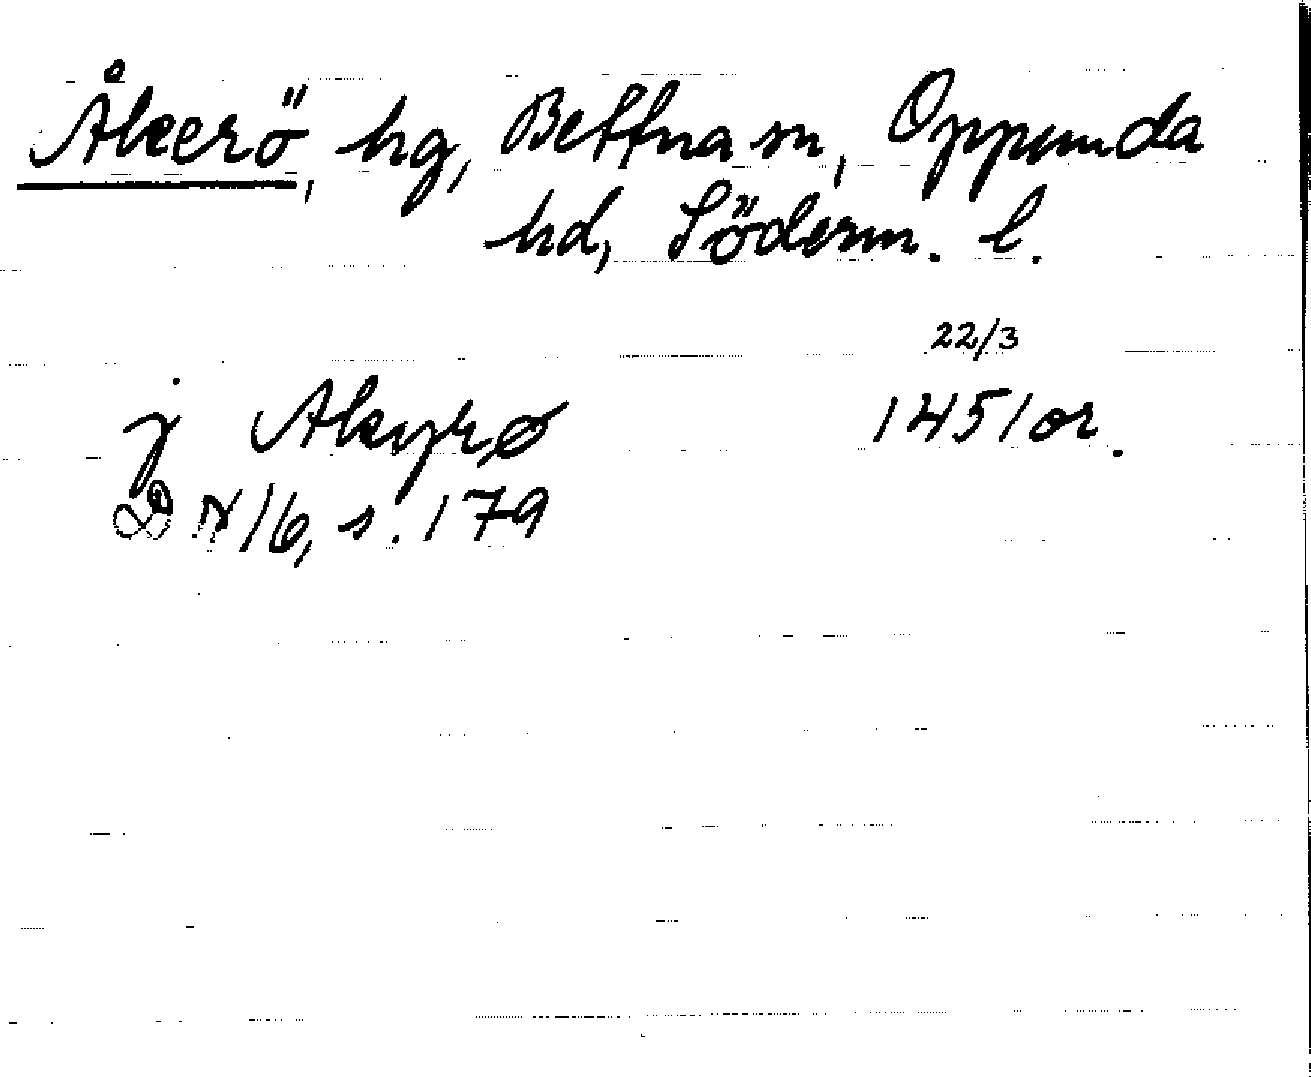 Åkerö, hg, Bettna sn, Oppunda
hd, Söderm. l.
22/3
j Akyrø 1451 or.
D N 16, s. 179